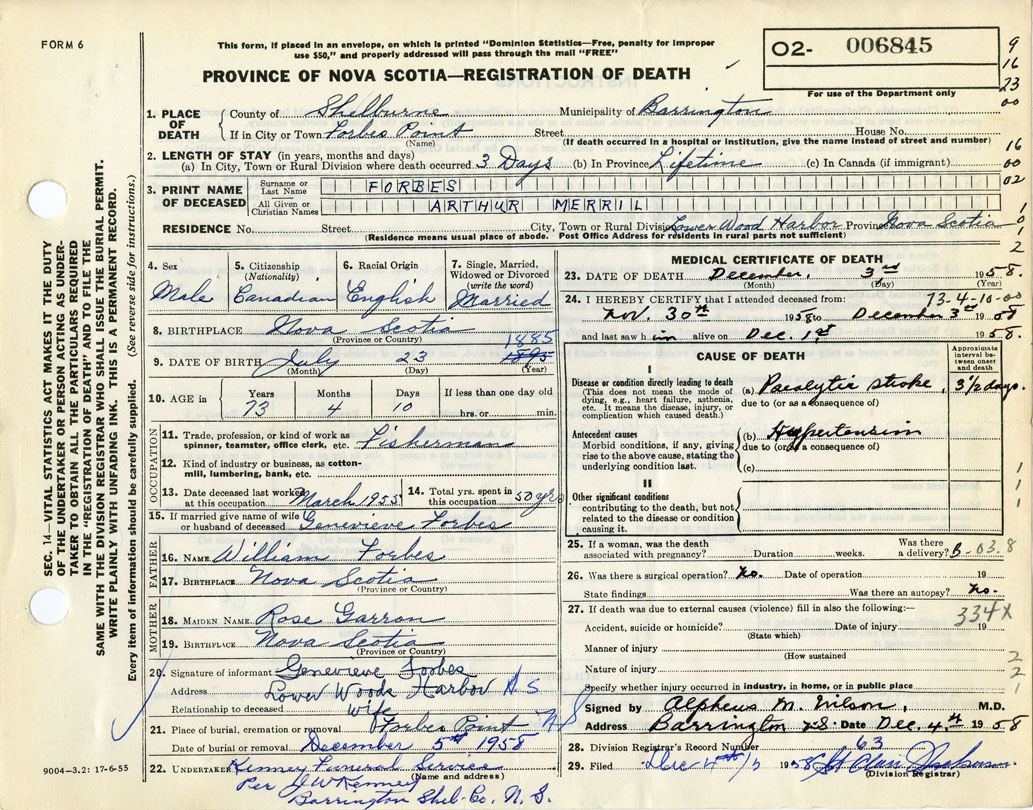 FORM 6
This form, if placed in an envelope, on which is printed "Dominion Statistics—Free, penalty for improper
use $50," and properly addressed will pass through the mail "FREE"
PROVINCE OF NOVA SCOTIA—REGISTRATION OF DEATH
O2- 006845
For use of the Department only
9
16
23
00
16
00
02
1
0
1
2
SEC. 14—VITAL STATISTICS ACT MAKES IT THE DUTY
OF THE UNDERTAKER OR PERSON ACTING AS UNDER-
TAKER TO OBTAIN ALL THE PARTICULARS REQUIRED
IN THE "REGISTRATION OF DEATH" AND TO FILE THE
SAME WITH THE DIVISION REGISTRAR WHO SHALL ISSUE THE BURIAL PERMIT.
WRITE PLAINLY WITH UNFADING INK. THIS IS A PERMANENT RECORD.
Every item of information should be carefully supplied. (See reverse side for instructions.)
1. PLACE OF DEATH
County of Shelburne Municipality of Barrington
If in City or Town Forbes Point Street House No.
(Name) (If death occurred in a hospital or institution, give the name instead of street and number)
2. LENGTH OF STAY (in years, months and days)
(a) In City, Town or Rural Division where death occurred. 3 Days (b) In Province Lifetime (c) In Canada (if immigrant)
3. PRINT NAME OF DECEASED
Surname or Last Name FORBES
All Given or Christian Names ARTHUR MERRIL
RESIDENCE No. Street City, Town or Rural Division Lower Wood Harbor Province Nova Scotia
(Residence means usual place of abode. Post Office Address for residents in rural parts not sufficient)
4. Sex
Male
5. Citizenship
(Nationality)
Canadian
6. Racial Origin
English
7. Single, Married,
Widowed or Divorced
(write the word)
Married
8. BIRTHPLACE Nova Scotia
(Province or Country)
1885
9. DATE OF BIRTH July 23 1895
(Month) (Day) (Year)
10. AGE in
Years Months Days If less than one day old
73 4 10 hrs. or min.
OCCUPATION
11. Trade, profession, or kind of work as
spinner, teamster, office clerk, etc. Fisherman
12. Kind of industry or business, as cotton-
mill, lumbering, bank, etc.
13. Date deceased last worked
at this occupation March 1955
14. Total yrs. spent in
this occupation 50 yrs
15. If married give name of wife
or husband of deceased Genevieve Forbes
FATHER
16. NAME William Forbes
17. BIRTHPLACE Nova Scotia
(Province or Country)
MOTHER
18. MAIDEN NAME Rose Garron
19. BIRTHPLACE Nova Scotia
(Province or Country)
20. Signature of informant Genevieve Forbes
Address Lower Woods Harbor N S
Relationship to deceased wife
21. Place of burial, cremation or removal Forbes Point N S
Date of burial or removal December 5th 1958
22. UNDERTAKER Kenney Funeral Service
(Name and address)
Per J W Kenney
Barrington Shel. Co. N. S.
9004-3.2: 17-6-55
MEDICAL CERTIFICATE OF DEATH
23. DATE OF DEATH December, 3rd 1958.
(Month) (Day) (Year)
73-4-10-00
24. I HEREBY CERTIFY that I attended deceased from:
Nov. 30th 1958 to December 3rd 1958
and last saw him alive on Dec. 1st 1958.
CAUSE OF DEATH
Approximate
interval be-
tween onset
and death
I
Disease or condition directly leading to death
(This does not mean the mode of
dying, e.g., heart failure, asthenia,
etc. It means the disease, injury, or
complication which caused death.)
(a) Paralytic stroke, 3 1/2 days.
due to (or as a consequence of)
Antecedent causes
Morbid conditions, if any, giving
rise to the above cause, stating the
underlying condition last.
(b) Hypertension
due to (or as a consequence of)
(c)
II
Other significant conditions
contributing to the death, but not
related to the disease or condition
causing it.
1
1
1
25. If a woman, was the death
associated with pregnancy? Duration weeks. Was there
a delivery? B-03.8
26. Was there a surgical operation? No. Date of operation 19
State findings Was there an autopsy? No.
27. If death was due to external causes (violence) fill in also the following:—
334X
Accident, suicide or homicide? Date of injury 19
(State which)
Manner of injury
(How sustained
Nature of injury
2
2
1
Specify whether injury occurred in industry, in home, or in public place
Signed by Alpheus M. Wilson, M.D.
Address Barrington N.S. Date Dec. 4th 1958
28. Division Registrar's Record Number 63
29. Filed Dec 1958
(Division Registrar)